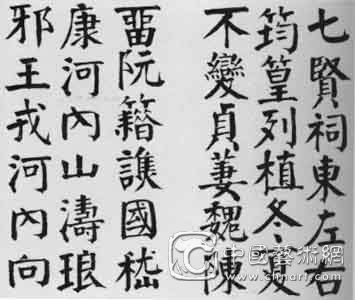 七賢祠東左右
筠篁列植冬夏
不變貞萋魏陳
畱阮籍譙國嵇
康河內山濤琅
邪王戎河內向
中國藝術網
www.chnart.com